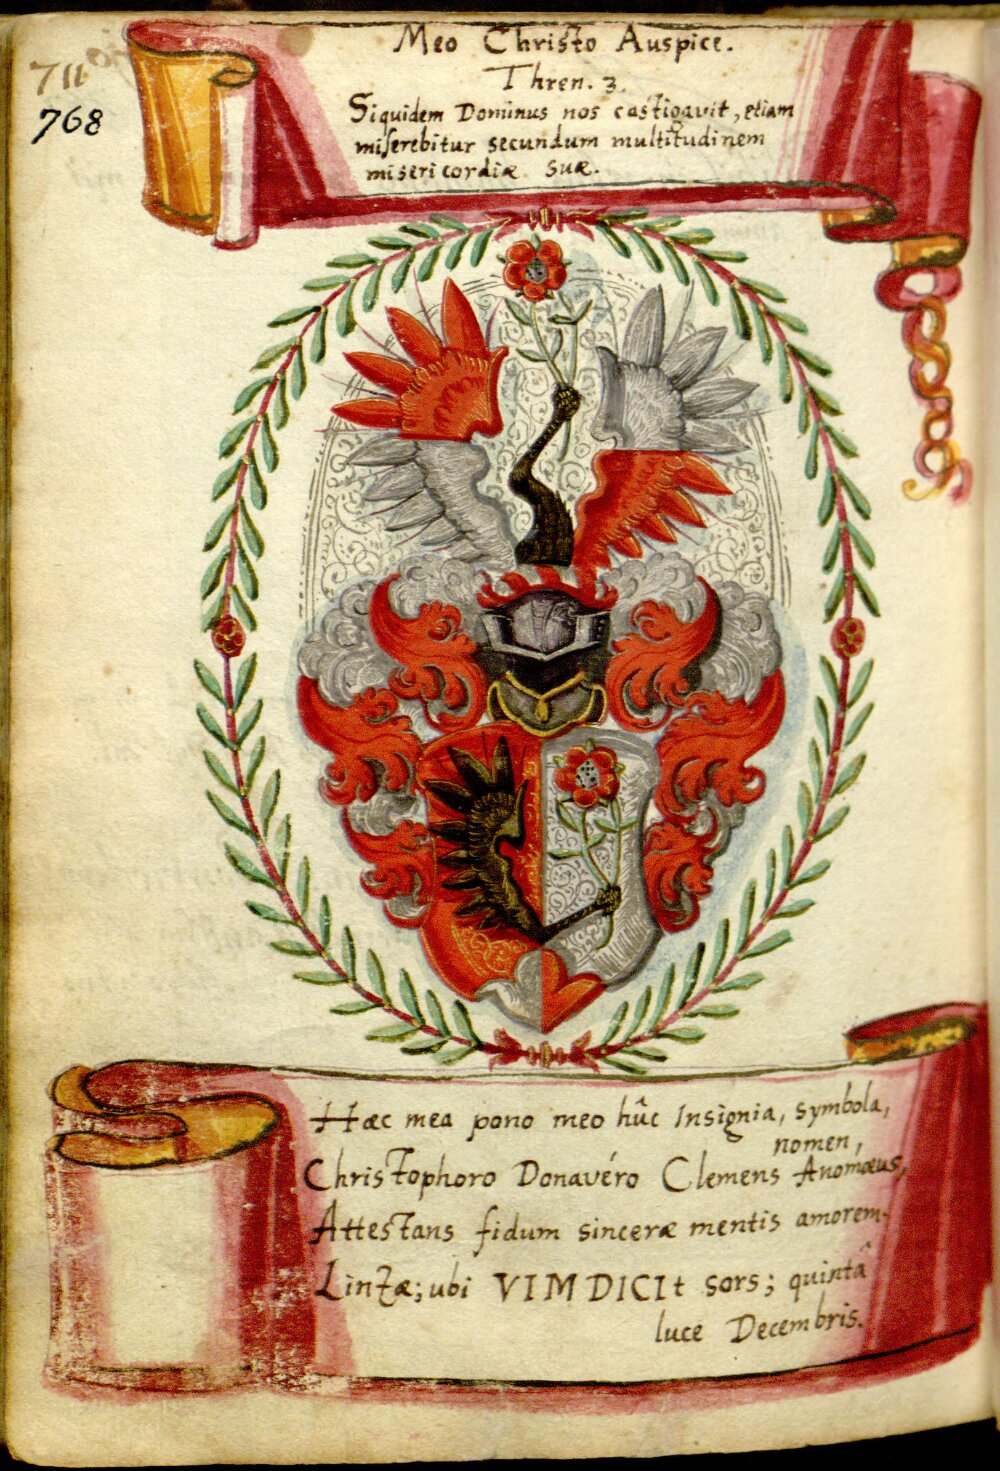 711
768
Meo Christo Auspice.
Thren. 3.
Siquidem Dominus nos castigavit, etiam
miserebitur secundum multitudinem
misericordiæ suæ.
Hæc mea pono meo hûc Insignia, symbola,
nomen,
Christophoro Donavéro Clemens Anomœus,
Attestans fidum sinceræ mentis amorem.
Linzæ; ubi VIM DICIt sors; quintâ
luce Decembris.